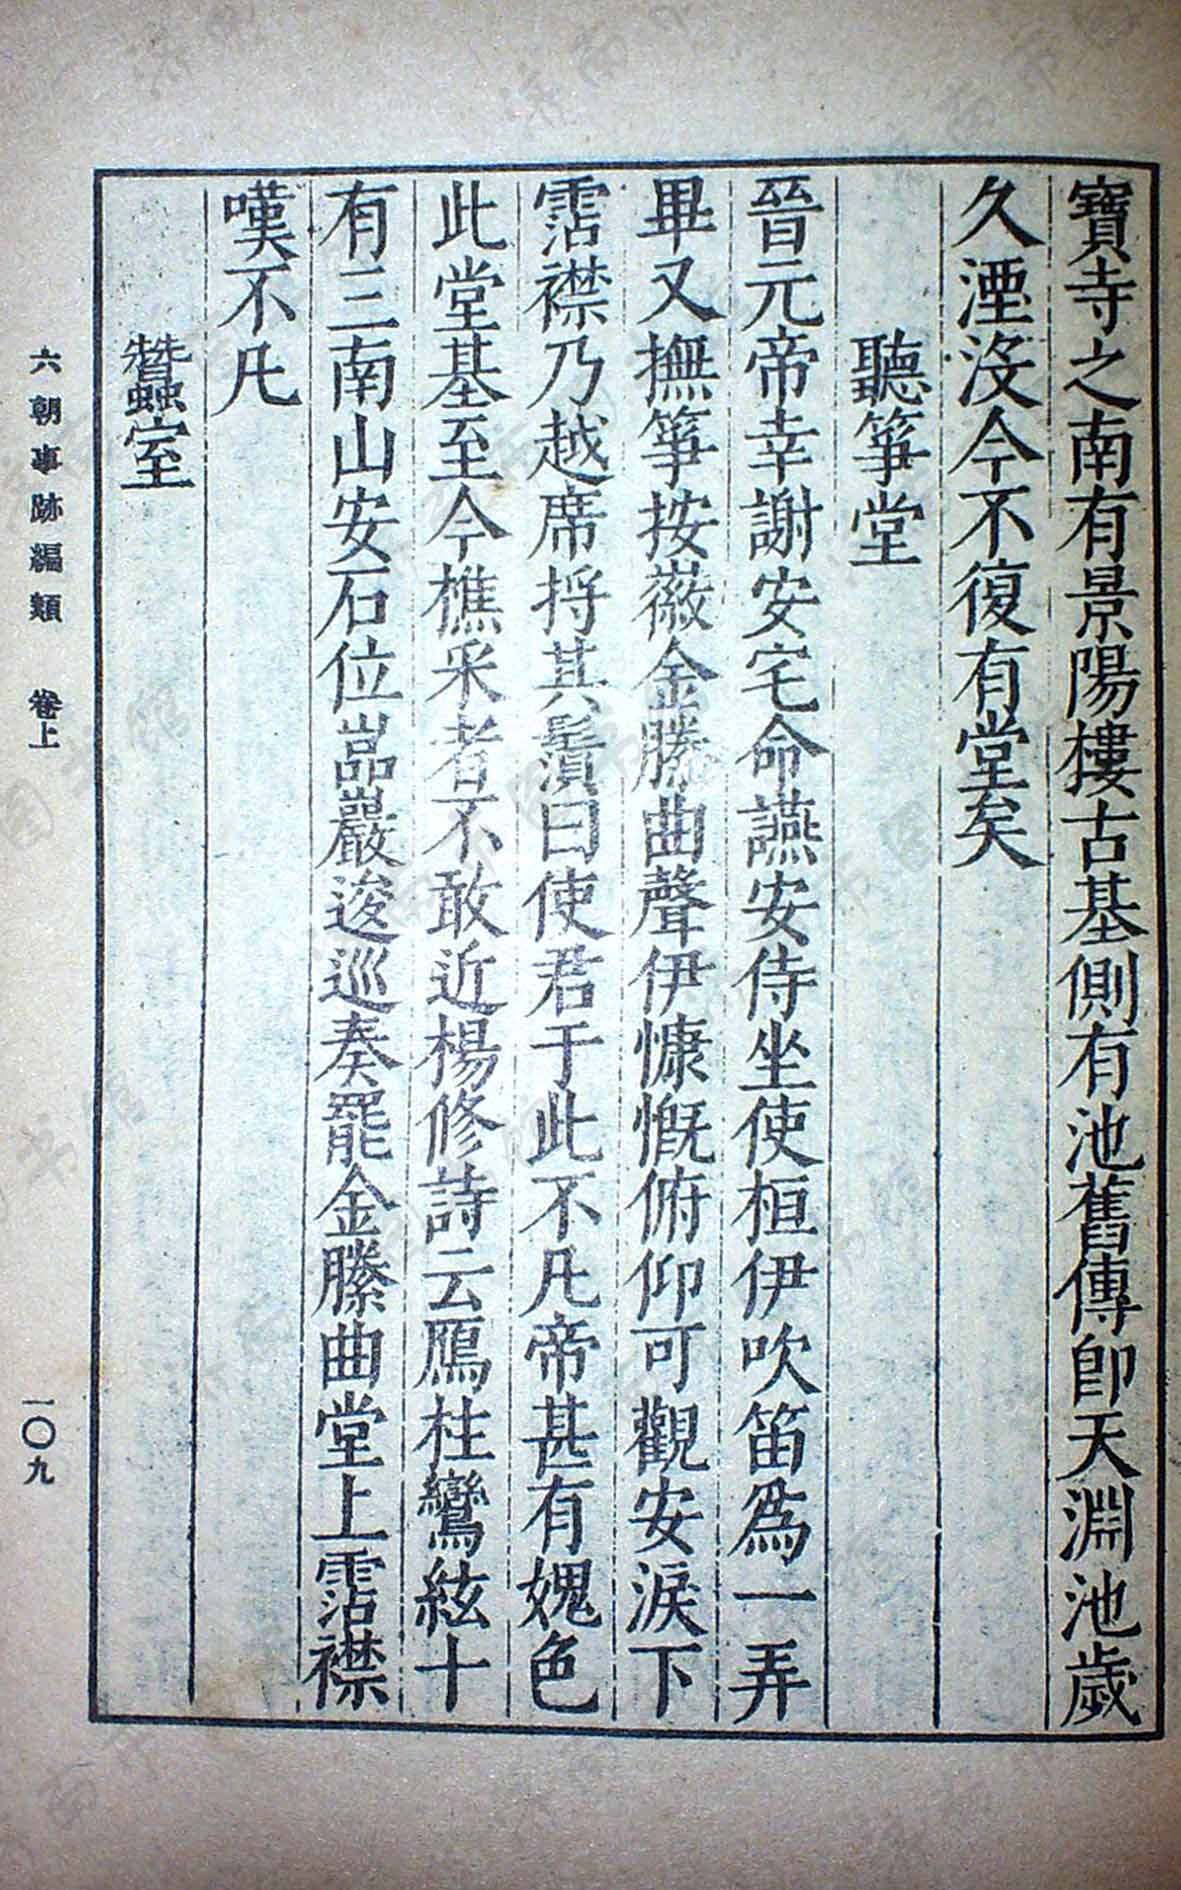 寶寺之南有景陽樓古基側有池舊傳即天淵池歲
久湮没今不復有堂矣
聽箏堂
晉元帝幸謝安宅命讌安侍坐使桓伊吹笛爲一弄
畢又撫箏按𢽾金縢曲聲伊慷慨俯仰可觀安淚下
霑襟乃越席捋其鬚曰使君于此不凡帝甚有媿色
此堂基至今樵采者不敢近楊修詩云鴈柱鸞絃十
有三南山安石位嵓巖逡巡奏罷金縢曲堂上霑襟
嘆不凡
蠶室
六朝事跡編類 卷上
一〇九